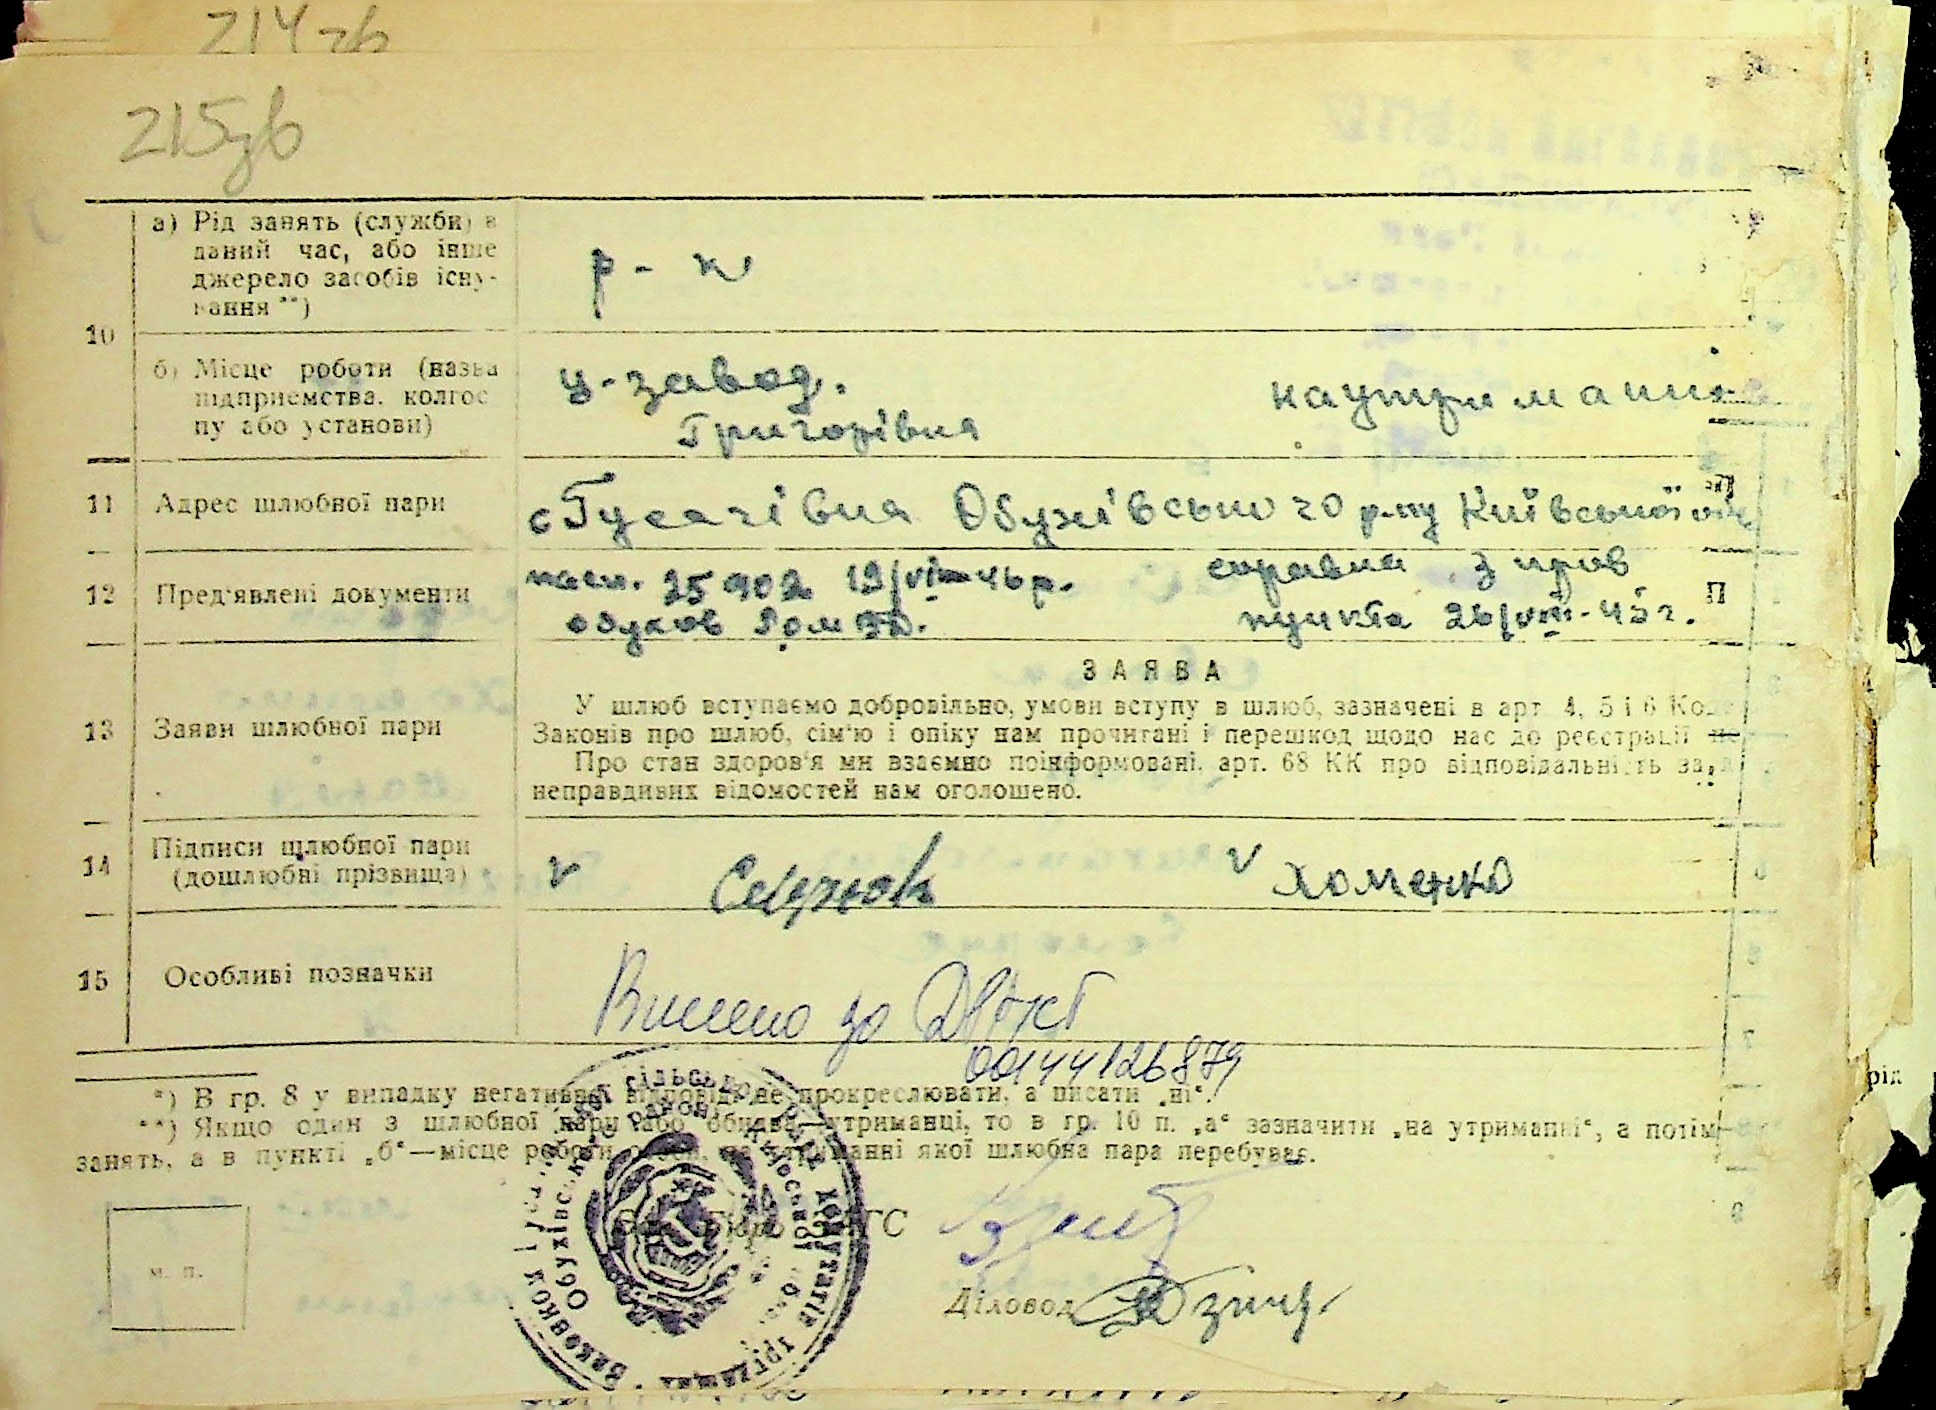 214зв
215зв
10
а) Рід занять (служби) в
даний час, або інше
джерело засобів існу-
вання **)
р-к
б) Місце роботи (назва
підприємства, колгос
пу або установи)
ц-завод.
Григорівка
на утриманні
11 Адрес шлюбної пари
с Гусачівка Обухівського р-ну Київської обл
12 Пред'явлені документи
12/VII-46р.
справка з
пункта 26/VIII-45г.
П
ЗАЯВА
13 Заяви шлюбної пари
У шлюб вступаємо добровільно, умови вступу в шлюб, зазначені в арт 4, 5 і 6 Коде
Законів про шлюб, сім'ю і опіку нам прочитані і перешкод щодо нас до реєстрації не
Про стан здоров'я ми взаємно поінформовані. арт. 68 КК про відповідальність за
неправдивих відомостей нам оголошено.
14 Підписи шлюбної пари
(дошлюбні прізвища)
v v Хоменко
15 Особливі позначки
Внесено до
00144126879
*) В гр. 8 у випадку негативної відповіді не прокреслювати, а писати „ні“.
**) Якщо один з шлюбної пари або обидва утриманці, то в гр. 10 п. „а“ зазначити „на утриманні“, а потім
занять, а в пункті „б“—місце роботи особи, на утриманні якої шлюбна пара перебуває.
Зав. Бюро ЗАГС
м. п.
Діловод
рід